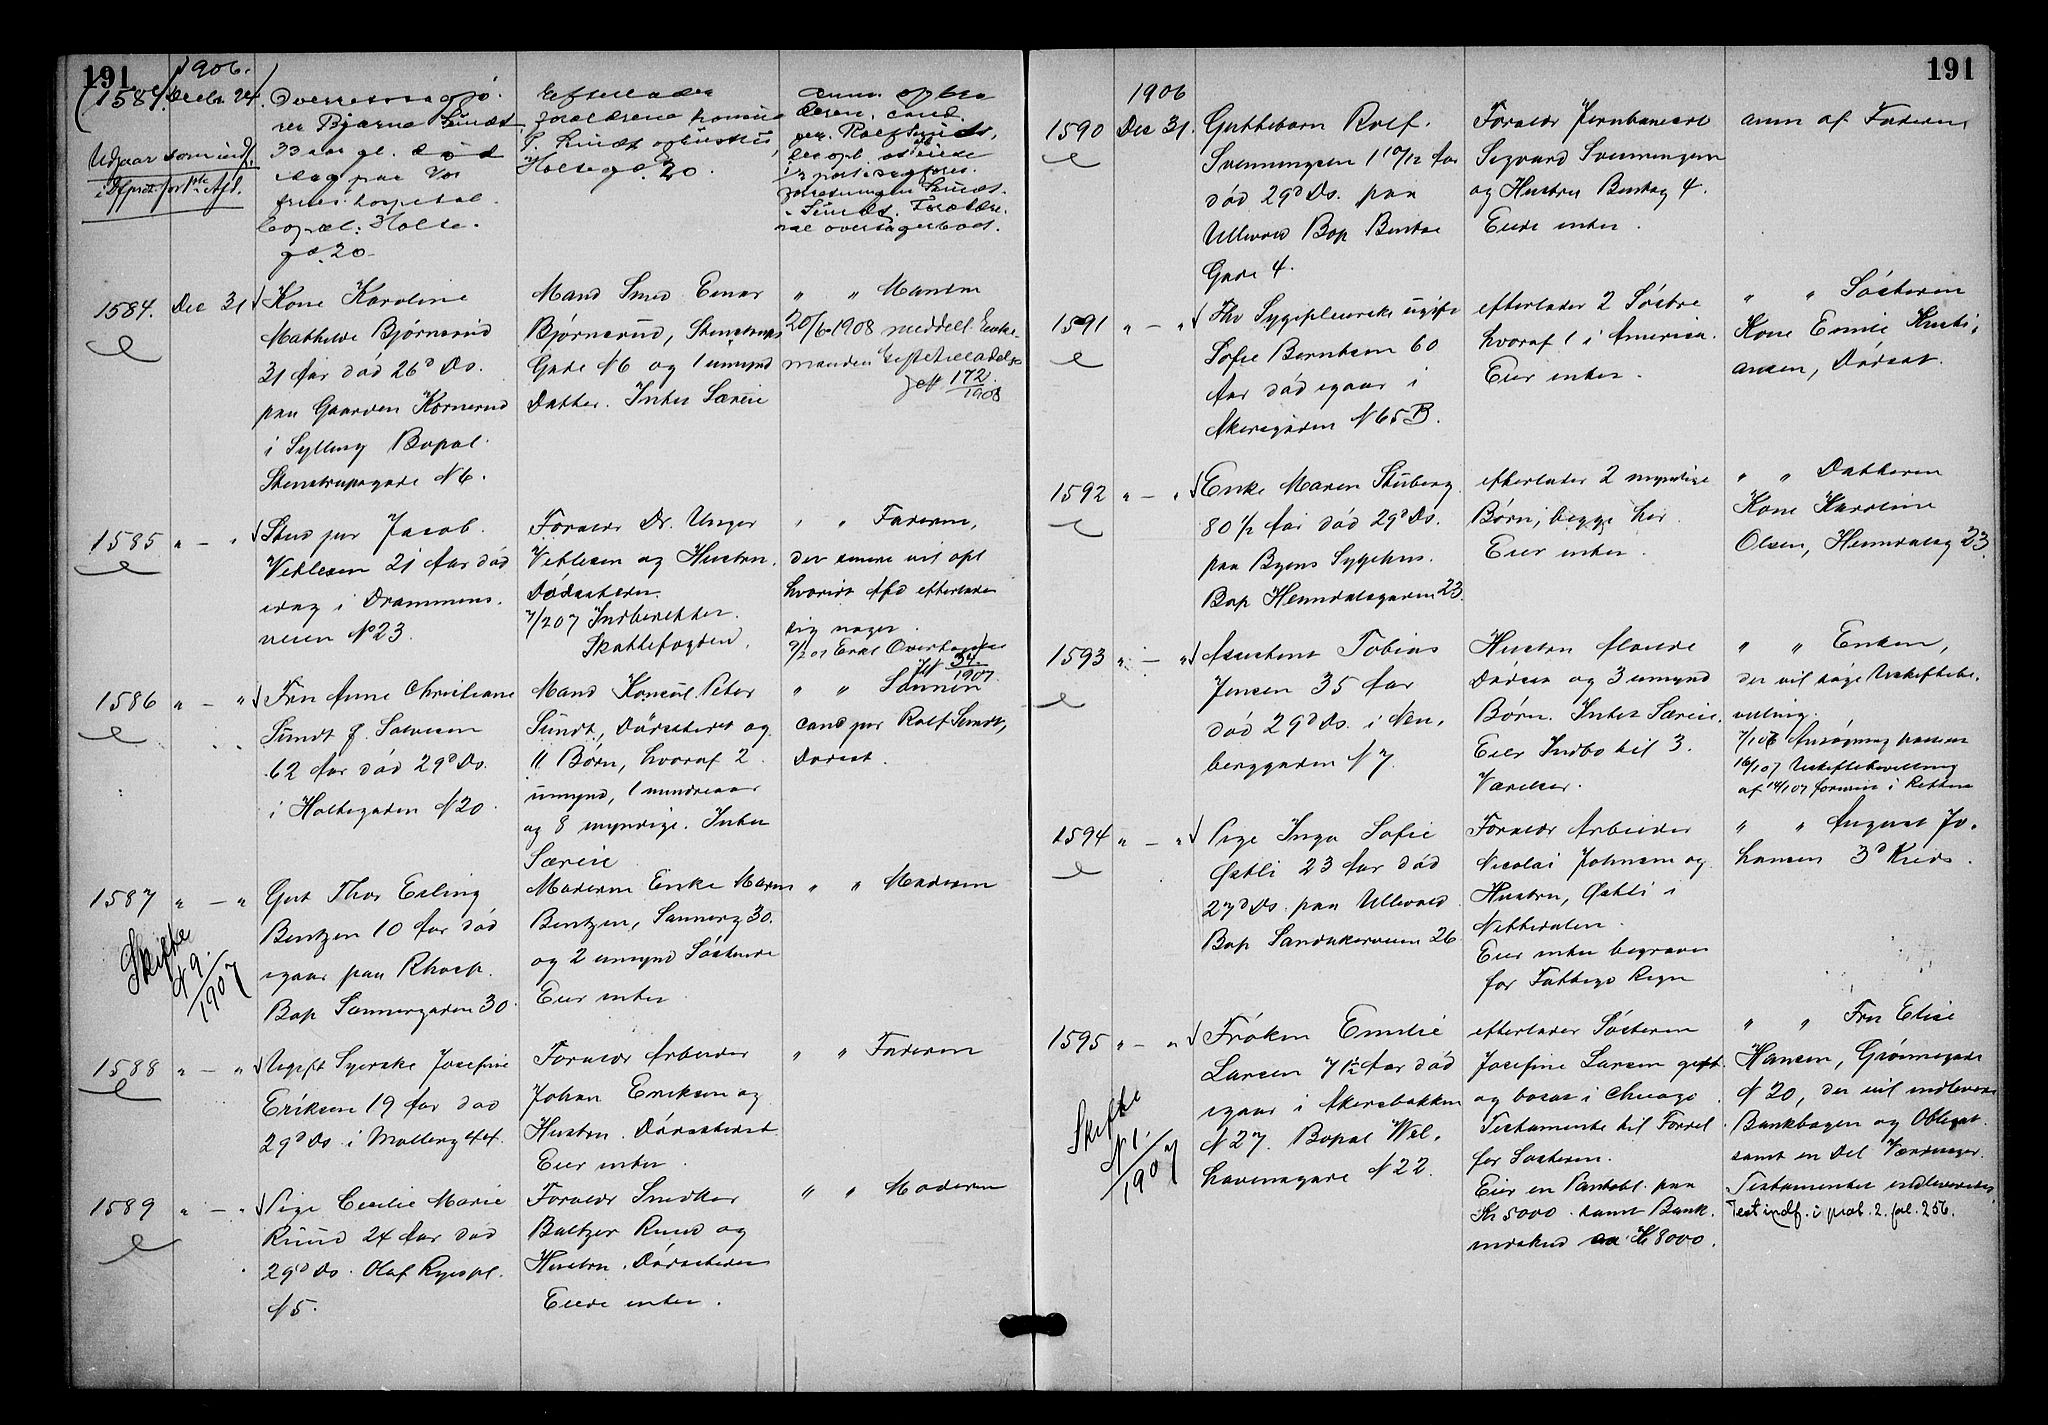 191
1906.
(1584. Decbr 24.
Udgaar som indf.
Overretssagfø-
rer Bjarne Sundt
33 aar gl. død
idag paa Vor
frues hospital.
Bopæl: Holte-
gd. 20
Efterlader
forældrene
P. Sundt og hustru,
Holtegd. 20.
anm. af bro
deren, cand.
jur. Rolf Sundt,
1584. Dec 31
Kone Karoline
Mathilde Bjørnerud
31 Aar død 26d Ds.
paa Gaarden Kornerud
i Sylling Bopæl
Stenstrupsgade N 6.
Mand Smed Einar
Bjørnerud, Stenstrups
Gade N6 og 1 umynd
Datter. Intet Særeie
" " Manden
20/6 1908 meddelt Enke-
manden Giftetilladelse
172
1908
1585 " — "
Stud jur Jacob
Vetlesen 21 Aar død
idag i Drammens-
veien No 23.
Forældr Dr. Unger
Vetlesen og Hustru,
Dødsstedet.
7/2 07 Indberettet
Skattefogden.
" " Faderen,
der senere vil opl
hvorvidt Afd efterlader
sig noget.
34
1907
1586 " — "
Fru Anne Christiane
Sundt f. Salvesen
62 Aar død 29d Ds.
i Holtegaden N 20
Mand Konsul Peter
Sundt, Dødsstedet og
11 Børn, hvoraf 2
umynd, 1 mindreaar
og 8 myndige. Intet
Særeie
" " Sønnen
cand jur Rolf Sundt,
Dødsst.
1587 " — "
Skifte
N 9.
1907
Gut Thor Esling
Bentzen 10 Aar død
igaar paa Rhosp.
Bop Sannergaden 30.
Moderen Enke Maren
Bentzen, Sannerg 30.
og 2 umynd Søstende
Eier intet
" " Moderen
1588 " — "
Ugift Syerske Josefine
Eriksen 19 Aar død
29d Ds. i Møllerg 44.
Forældr Arbeider
Johan Eriksen og
Hustru. Dødsstedet.
Eier intet
" " Faderen
1589 " — "
Pige Cecilie Marie
Ruud 24 Aar død
29d Ds. Olaf Ryespl.
N 5.
Forældr Snedker
Baltzer Ruud og
Hustru. Dødsstedet
Eiede intet.
" " Moderen
191
1906
1590 Dec 31.
Guttebarn Rolf
Svenningsen 1 10/12 Aar
død 29d Ds. paa
Ullevaal Bop Bentse
Gade 4.
Forældr Jernbanearb
Sigvard Svenningsen
og Hustru Bentseg 4.
Eiede intet.
anm af Faderen
1591 " — "
Fhv Sygepleierske ugift
Sofie Berntsen 60
Aar død igaar i
Akersgaden N 65 B.
efterlader 2 Søstre
hvoraf 1 i Amerika.
Eier intet.
" " Søsteren
Kone Emilie Kristi-
ansen, Dødsst.
1592 " — "
Enke Maren Stuberg
80 1/2 Aar død 29d Ds.
paa Byens Sygehus.
Bop Heimdalsgaden 23.
efterlader 2 myndige
Børn, begge her.
Eier intet.
" " Datteren
Kone Karoline
Olsen, Heimdalsg 23.
1593 " — "
Assistent Tobias
Jensen 35 Aar
død 29d Ds. i Nan-
berggaden N 7.
Hustru
Dødsst og 3 umynd
Børn. Intet Særeie.
Eier Indbo til 3
Værelser.
" " Enken,
der vil søge Uskiftebe-
villing.
16/1 07 Uskiftebevilling
af 14/1 07 forevist i Retten
1594 " — "
Pige Inga Sofie
Østli 23 Aar død
27d Ds. paa Ullevaal
Bop Sandakerveien 26
Forældr Arbeider
Nicolai Johnsen og
Hustru, Østli i
Nittedalen.
Eier intet begraves
for Fattigv Regn
" " August Jo-
hansen 3d Kreds.
1595 " — "
Skifte
N 1.
1907
Frøken Emilie
Larsen 71 1/2 Aar død
igaar i Akersbakken
N 27. Bopæl Wel-
havensgade N 22.
efterlader Søsteren
Josefine Larsen gift
og bosat i Chicago.
Testamente til Fordel
for Søsteren.
Eier en Pantobl. paa
Kr 5000 samt Bank-
indskud Kr 8000.
" " Fru Elise
Hansen, Grønnegade
N 20, der vil indlevere
Bankbogen og Obligat.
samt en Del Værdisager.
Testamentet indleveredes
Test indf. i prot. 2. fol. 256.